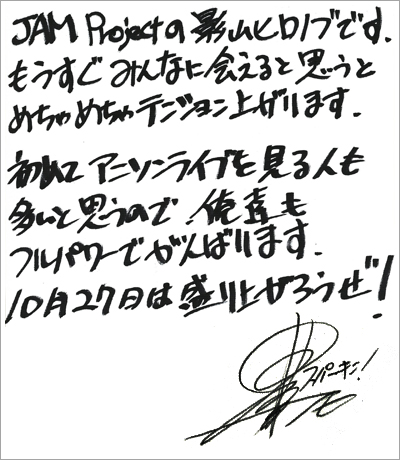 JAM Projectの影山ヒロノブです.
もうすぐみんなに会えると思うと
めちゃめちゃテンション上がります.
初めてアニソンライブを見る人も
多いと思うので 俺達も
フルパワーでがんばります.
10月27日は盛り上がろうぜ!
スパーキン!